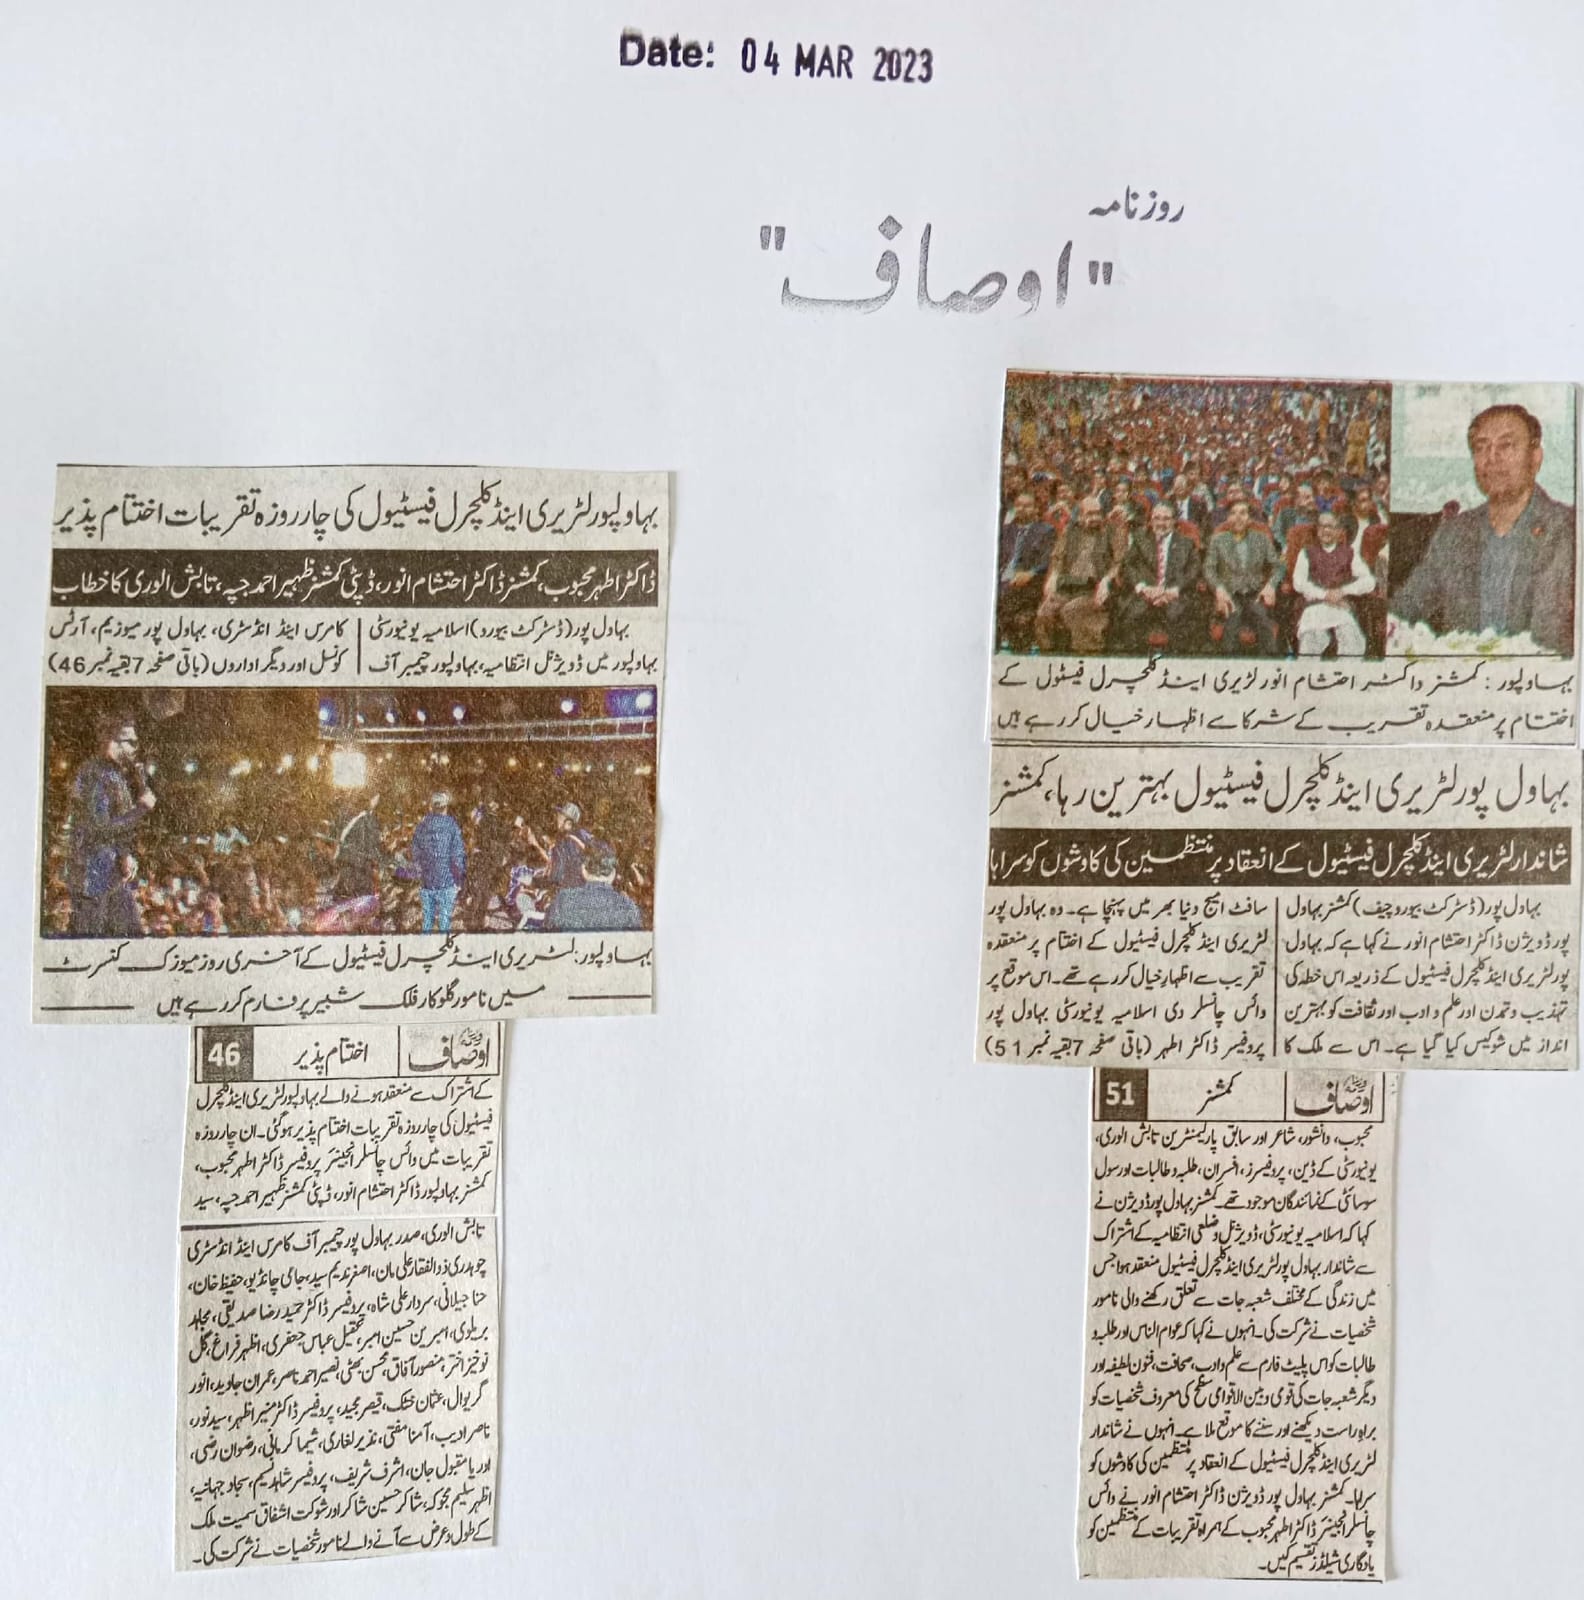 Date: 04 MAR 2023
روزنامہ
"اوصاف"
بہاولپور: کمشنر ڈاکٹر احتشام انور لٹریری اینڈ کلچرل فیسٹول کے
اختتام پر منعقدہ تقریب کے شرکا سے اظہار خیال کر رہے ہیں
بہاول پور لٹریری اینڈ کلچرل فیسٹیول بہترین رہا، کمشنر
شاندار لٹریری اینڈ کلچرل فیسٹیول کے انعقاد پر منتظمین کی کاوشوں کو سراہا
بہاول پور (ڈسٹرکٹ بیورو چیف) کمشنر بہاول
پور ڈویژن ڈاکٹر احتشام انور نے کہا ہے کہ بہاول
پور لٹریری اینڈ کلچرل فیسٹیول کے ذریعہ اس خطہ کی
تہذیب و تمدن اور علم و ادب اور ثقافت کو بہترین
انداز میں شوکیس کیا گیا ہے۔ اس سے ملک کا
سافٹ امیج دنیا بھر میں پہنچا ہے۔ وہ بہاول پور
لٹریری اینڈ کلچرل فیسٹیول کے اختتام پر منعقدہ
تقریب سے اظہار خیال کر رہے تھے۔ اس موقع پر
وائس چانسلر دی اسلامیہ یونیورسٹی بہاول پور
پروفیسر ڈاکٹر اطہر (باقی صفحہ 7 بقیہ نمبر 51)
اوصاف کمشنر 51
محبوب، دانشور، شاعر اور سابق پارلیمنٹرین تابش الوری،
یونیورسٹی کے ڈین، پروفیسرز، افسران، طلبہ و طالبات اور سول
سوسائٹی کے نمائندگان موجود تھے۔ کمشنر بہاول پور ڈویژن نے
کہا کہ اسلامیہ یونیورسٹی، ڈویژنل و ضلعی انتظامیہ کے اشتراک
سے شاندار بہاول پور لٹریری اینڈ کلچرل فیسٹیول منعقد ہوا جس
میں زندگی کے مختلف شعبہ جات سے تعلق رکھنے والی نامور
شخصیات نے شرکت کی۔ انہوں نے کہا کہ عوام الناس اور طلبہ و
طالبات کو اس پلیٹ فارم سے علم و ادب، صحافت، فنون لطیفہ اور
دیگر شعبہ جات کی قومی و بین الاقوامی سطح کی معروف شخصیات کو
براہ راست دیکھنے اور سننے کا موقع ملا ہے۔ انہوں نے شاندار
لٹریری اینڈ کلچرل فیسٹیول کے انعقاد پر منتظمین کی کاوشوں کو
سراہا۔ کمشنر بہاول پور ڈویژن ڈاکٹر احتشام انور نے وائس
چانسلر انجینئر ڈاکٹر اطہر محبوب کے ہمراہ تقریبات کے منتظمین کو
یادگاری شیلڈز تقسیم کیں۔
بہاولپور لٹریری اینڈ کلچرل فیسٹیول کی چار روزہ تقریبات اختتام پذیر
ڈاکٹر اطہر محبوب، کمشنر ڈاکٹر احتشام انور، ڈپٹی کمشنر ظہیر احمد جپہ، تابش الوری کا خطاب
بہاول پور (ڈسٹرکٹ بیورو) اسلامیہ یونیورسٹی
بہاولپور میں ڈویژنل انتظامیہ، بہاولپور چیمبر آف
کامرس اینڈ انڈسٹری، بہاول پور میوزیم، آرٹس
کونسل اور دیگر اداروں (باقی صفحہ 7 بقیہ نمبر 46)
بہاولپور: لٹریری اینڈ کلچرل فیسٹیول کے آخری روز میوزک کنسرٹ
میں نامور گلوکار فلک شبیر پرفارم کر رہے ہیں
اوصاف اختتام پذیر 46
کے اشتراک سے منعقد ہونے والے بہاولپور لٹریری اینڈ کلچرل
فیسٹیول کی چار روزہ تقریبات اختتام پذیر ہوگئی۔ ان چار روزہ
تقریبات میں وائس چانسلر انجینئر پروفیسر ڈاکٹر اطہر محبوب،
کمشنر بہاولپور ڈاکٹر احتشام انور، ڈپٹی کمشنر ظہیر احمد جپہ، سید
تابش الوری، صدر بہاول پور چیمبر آف کامرس اینڈ انڈسٹری
چوہدری ذوالفقار علی مان، اصغر ندیم سید، جامی چانڈیو، حفیظ خان،
حنا جیلانی، سردار علی شاہ، پروفیسر ڈاکٹر حمید رضا صدیقی، مجاہد
بریلوی، امبرین حسین امبر، عقیل عباس جعفری، اظہر فراغ، گل
نوخیز اختر، منصور آفاق، محسن بھٹی، نصیر احمد ناصر، عمران جاوید، انور
گریوال، عثمان خٹک، قیصر مجید، پروفیسر ڈاکٹر منیر اظہر، سید نور،
ناصر ادیب، آمنا مفتی، نذیر لغاری، شیما کرمانی، رضوان رضی،
اوریا مقبول جان، اشرف شریف، پروفیسر شاہد نسیم، سجاد جہانیہ،
اظہر سلیم مجوکہ، شاکر حسین شاکر اور شوکت اشفاق سمیت ملک
کے طول و عرض سے آنے والے نامور شخصیات نے شرکت کی۔